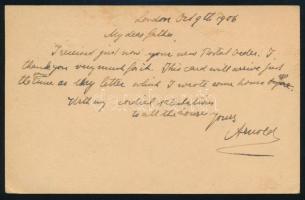 London Oct 9th 1906
My dear father,
I received just now your new Postal Order. I
thank you very much for it. This card will arrive just
the time as my letter which I wrote some hours ago.
With my cordial salutations
to all the house
Yours
Arnold